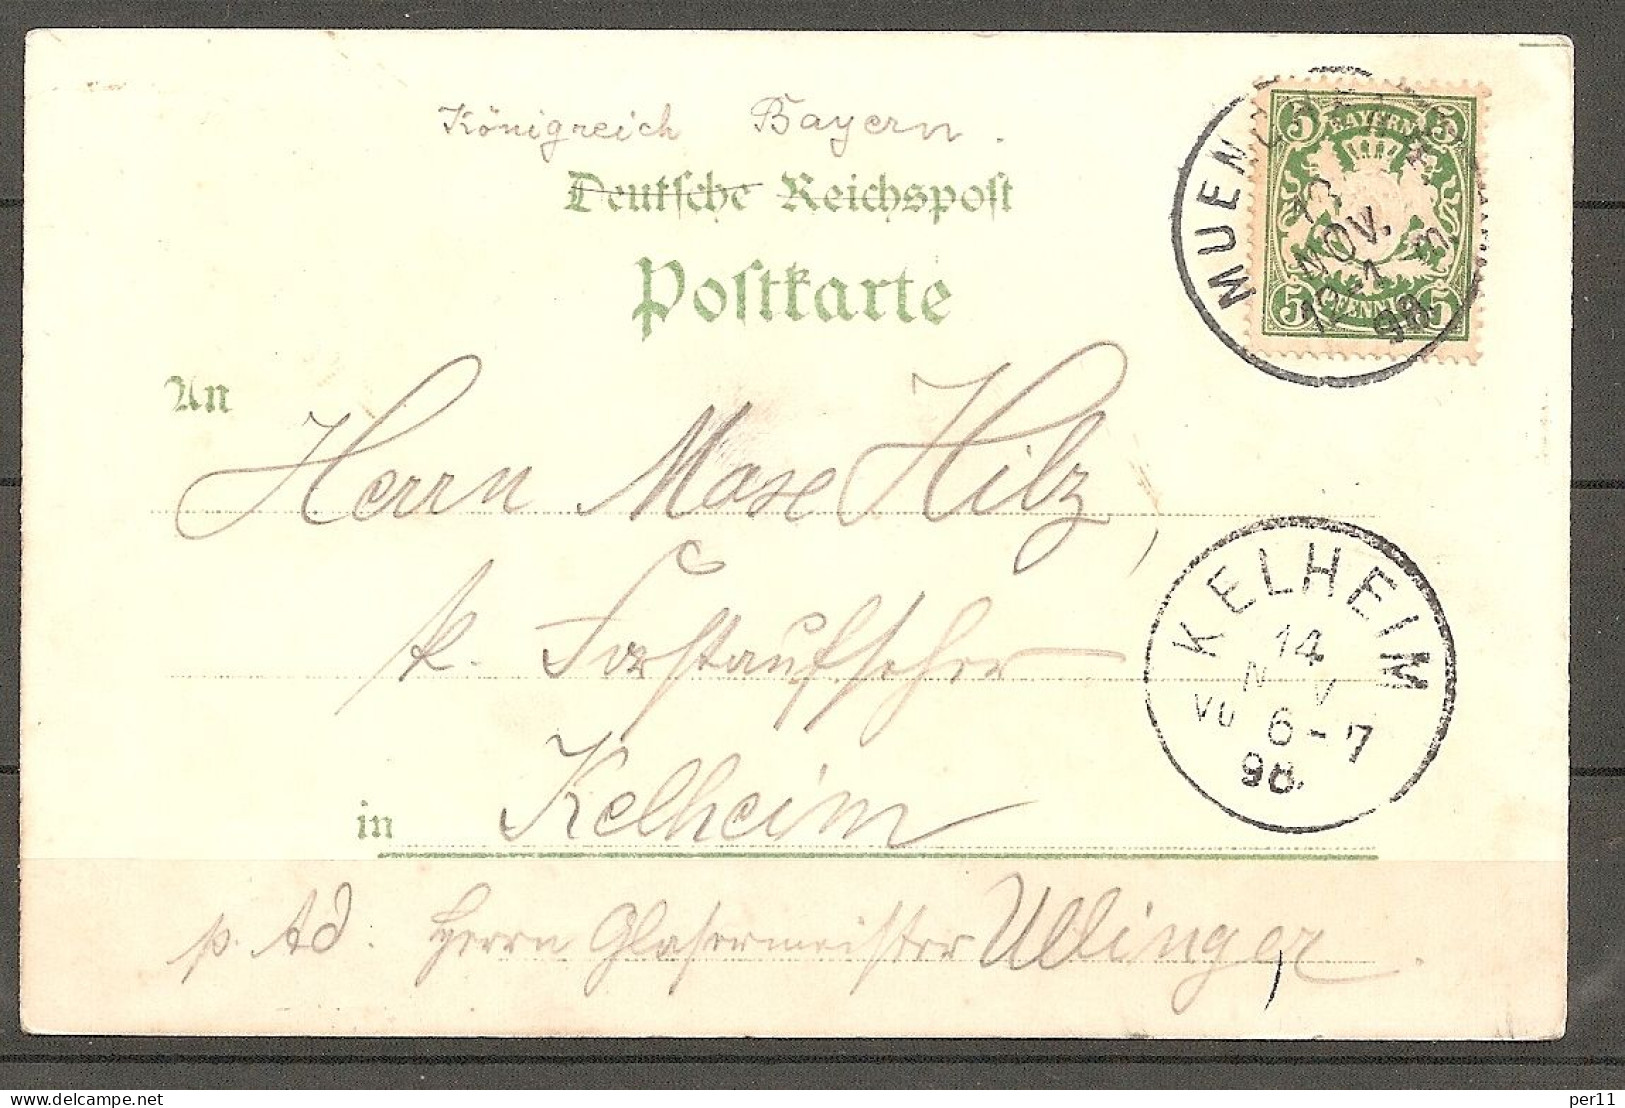 Königreich Bayern.
Deutsche Reichspost
Postkarte
BAYERN
5 5
5 PFENNIG 5
MUENCHEN
13
NOV.
98.
An
Herrn Max Hilz,
k. Forstaufseher
in Kelheim
p. Ad. Herrn Glasermeister Ullinger.
KELHEIM
14
N V
6-7
98.
per11